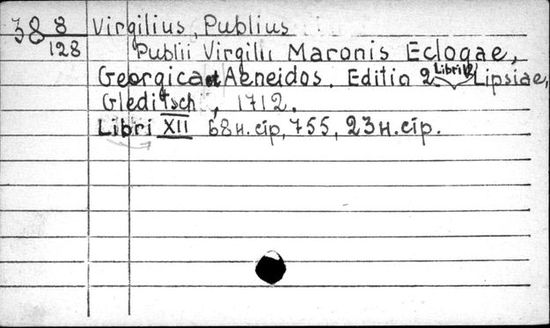 38 8/128 Virgilius, Publius
Publii Virgilii Maronis Eclogae,
Georgica et Aeneidos. Editio 2 Libri 12 Lipsiae,
Gleditsch, 1712.
Libri XII 68 н. сір, 755, 23 н. сір.